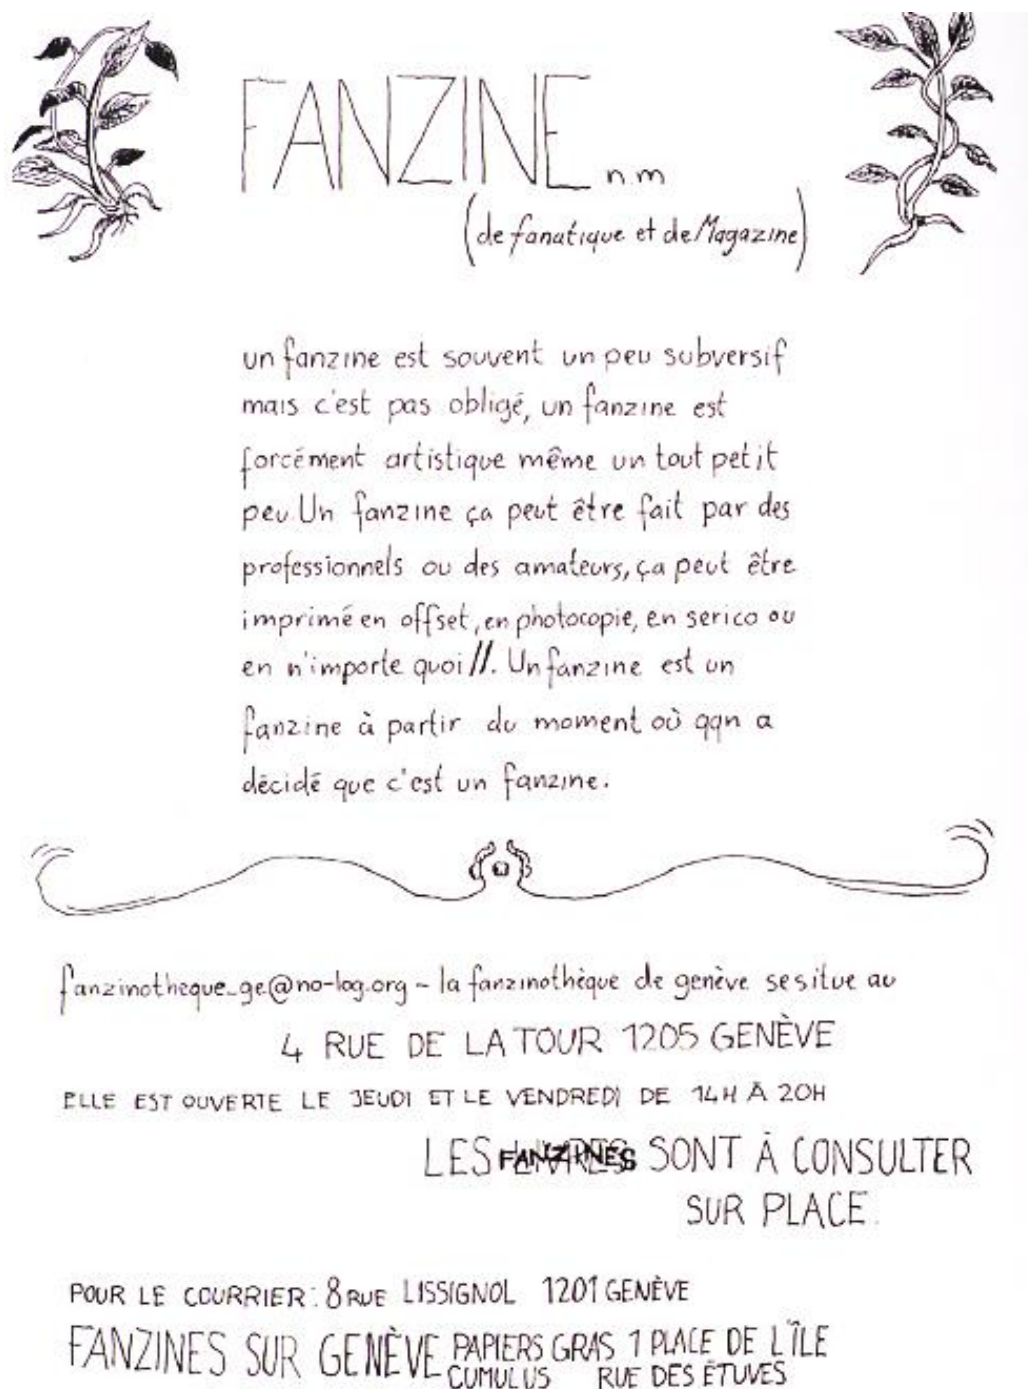 FANZINE n.m
(de fanatique et de Magazine)
un fanzine est souvent un peu subversif
mais c'est pas obligé, un fanzine est
forcément artistique même un tout petit
peu Un fanzine ça peut être fait par des
professionnels ou des amateurs, ça peut être
imprimé en offset, en photocopie, en serico ou
en n'importe quoi //. Un fanzine est un
fanzine à partir du moment où qqn a
décidé que c'est un fanzine.
fanzinotheque_ge@no-log.org - la fanzinothèque de genève se situe au
4 RUE DE LA TOUR 1205 GENÈVE
ELLE EST OUVERTE LE JEUDI ET LE VENDREDI DE 14H À 20H
LES FANZINES SONT À CONSULTER
SUR PLACE.
POUR LE COURRIER: 8 RUE LISSIGNOL 1201 GENÈVE
FANZINES SUR GENÈVE PAPIERS GRAS 1 PLACE DE L'ÎLE
CUMULUS RUE DES ÉTUVES